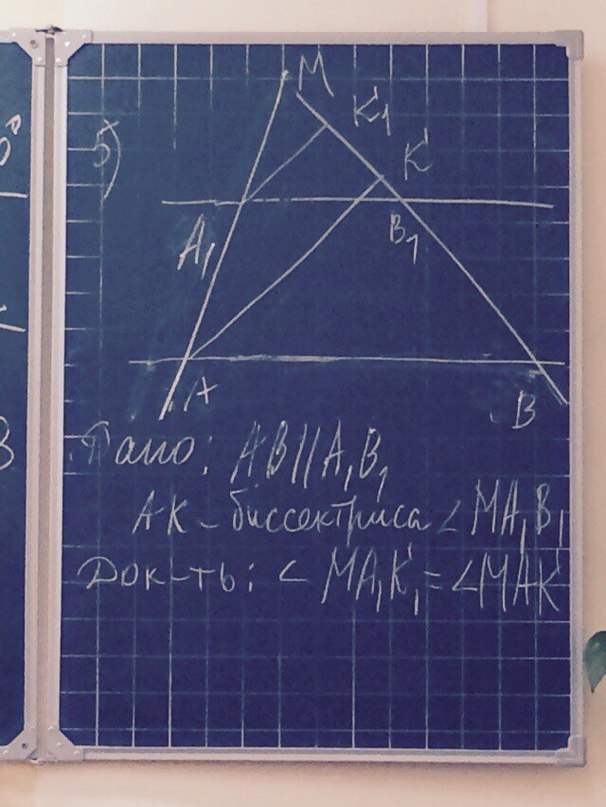 5)
M
K₁
K
A₁
B₁
A
B
Дано: AB || A₁B₁
AK - биссектриса ∠MA₁B₁
Док-ть: ∠MA₁K₁ = ∠MAK